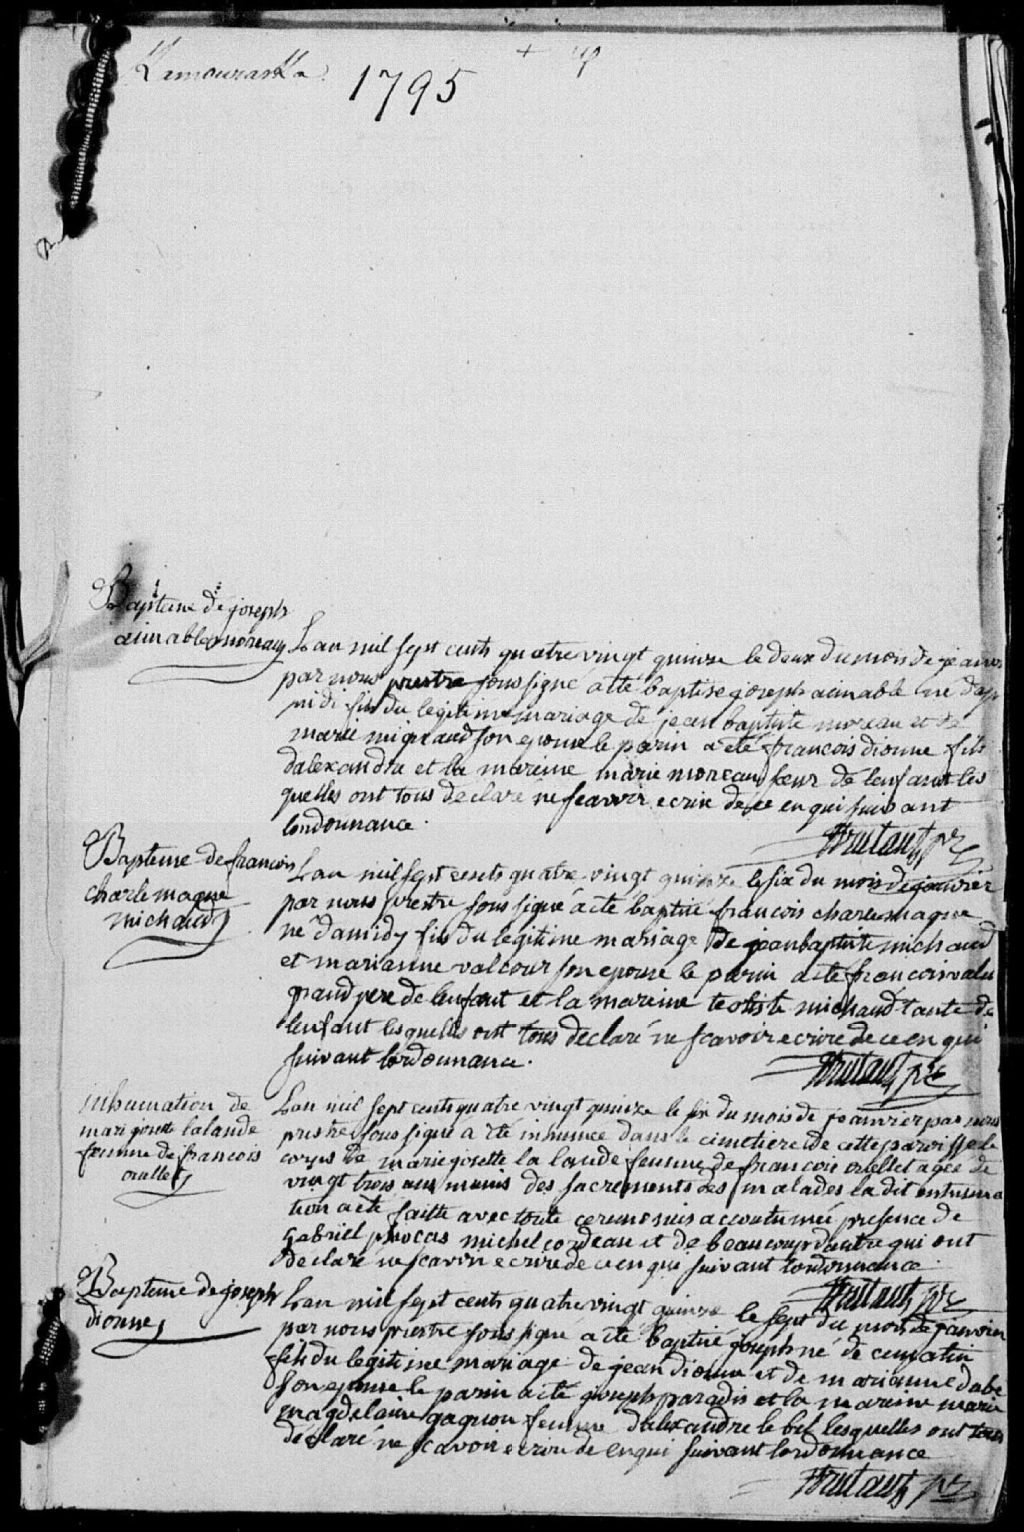 Kamouraska
1795
Bapteme de joseph
aimable moreau
Lan mil sept cents quatre vingt quinze le deux du mois de jeanv
par nous prestre sous signé a eté baptisé joseph aimable né d'ap
midi fils du legitime mariage de jean baptiste moreau et de
marie migneaud son epouse le parin a été francois dionne fils
dalexandre et la mareine marie moreau soeur de lenfant les
quelles ont tous declaré ne scavoir ecrire de ce enqui suivant
lordonnance.
Trutaut ptr
Bapteme de francois
charlemagne
michaud
Lan mil sept cents quatre vingt quinze le six du mois de jeanvier
par nous prestre sous signé a eté baptisé francois charlemagne
né d'amidy fils du legitime mariage de jean baptiste michaud
et marianne valcour son epouse le parin a eté francois valcu
grand pere de lenfant et la mareine teotiste michaud tante de
lenfant lesquelles ont tous declaré ne scavoir ecrire de ce en qui
suivant lordonnance.
Trutaut ptr
inhumation de
mari gosette lalande
femme de francois
ouellet
Lan mil sept cents quatre vingt quinze le six du mois de jeanvier par nous
prestre sous signé a été inhumée dans le cimetiere de cette paroisse le
corps de marie gosette la lande femme de francois ouellet agée de
vingt trois ans munis des sacrements des malades la dit inhuma
tion a eté faitte avec toute ceremonies accoutumée presence de
gabriel phocas michel cordeau et de beaucoup dautre qui ont
declaré ne scavoir ecrire de ce en qui suivant lordonnance.
Trutaut ptr
Bapteme de joseph
dionne
Lan mil sept cents quatre vingt quinze le sept du mois de janvier
par nous prestre sous signé a eté baptisé joseph né de ce matin
fils du legitime mariage de jean dionne et de marianne dube
son epouse le parin a eté joseph paradis et la mareine marie
magdelaine gagnon femme dalexandre le bel lesquelles ont tous
declaré ne scavoir ecrire de enqui suivant lordonnance
Trutaut ptr